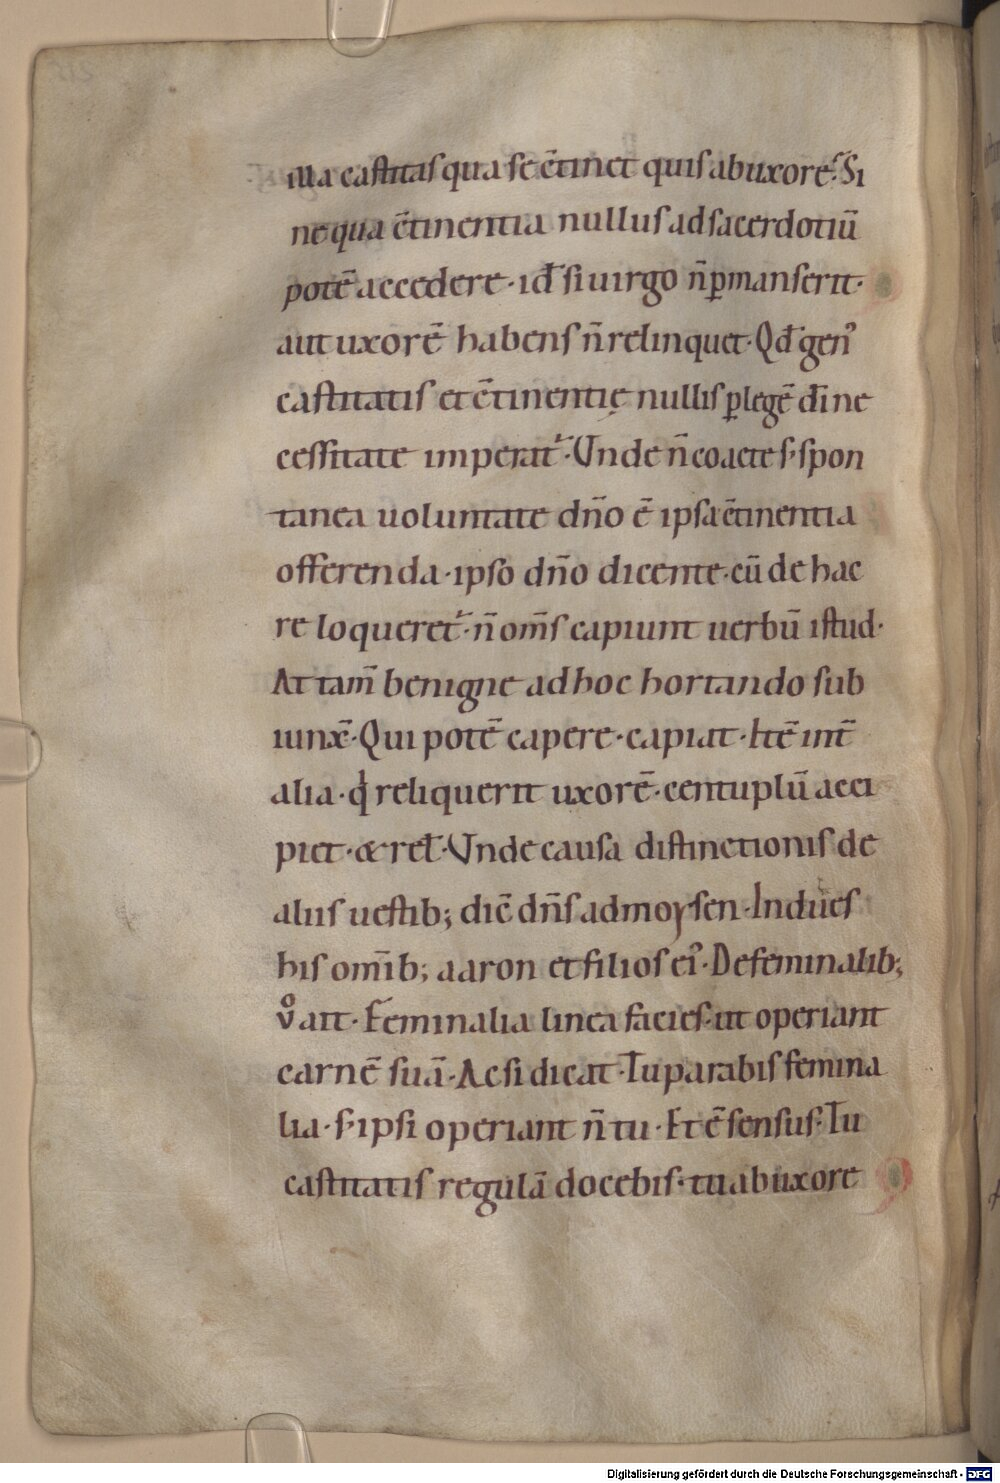 illa castitas qua se c̄tinet quis ab uxore. Si
ne qua c̄tinentia nullus ad sacerdotiū
potē accedere · id̄ si uirgo n̄ p̄manserit ·
aut uxorē habens n̄ relinquet · Qd̄ gen᾽
castitatis et c̄tinentię nullis p̄ legē dī ne
cessitate imperat᾽ · Vnde n̄ coacte s · spon
tanea uoluntate dn̄o ē ipsa c̄tinentia
offerenda · ipso dn̄o dicente · cū de hac
re loqueret᾽ · n̄ om̄s capiunt uerbū istud ·
At tam̄ benigne ad hoc hortando sub
iunx̄ · Qui potē capere · capiat · Itē int̄
alia · qͥ reliquerit uxorē · centuplū acci
piet · & rel̄ · Vnde causa distinctionis de
aliis uestib; dic̄ dn̄s ad moysen · Indues
his om̄ib; aaron et filios ei᾽ · De feminalib;
v̊ ait · Feminalia linea facies · ut operiant
carnē suā · Ac si dicat · Tu parabis femina
lia · s · ipsi operiant n̄ tu · Et ē sensus · Tu
castitatis regulā docebis · tu ab uxore
Digitalisierung gefördert durch die Deutsche Forschungsgemeinschaft - DFG